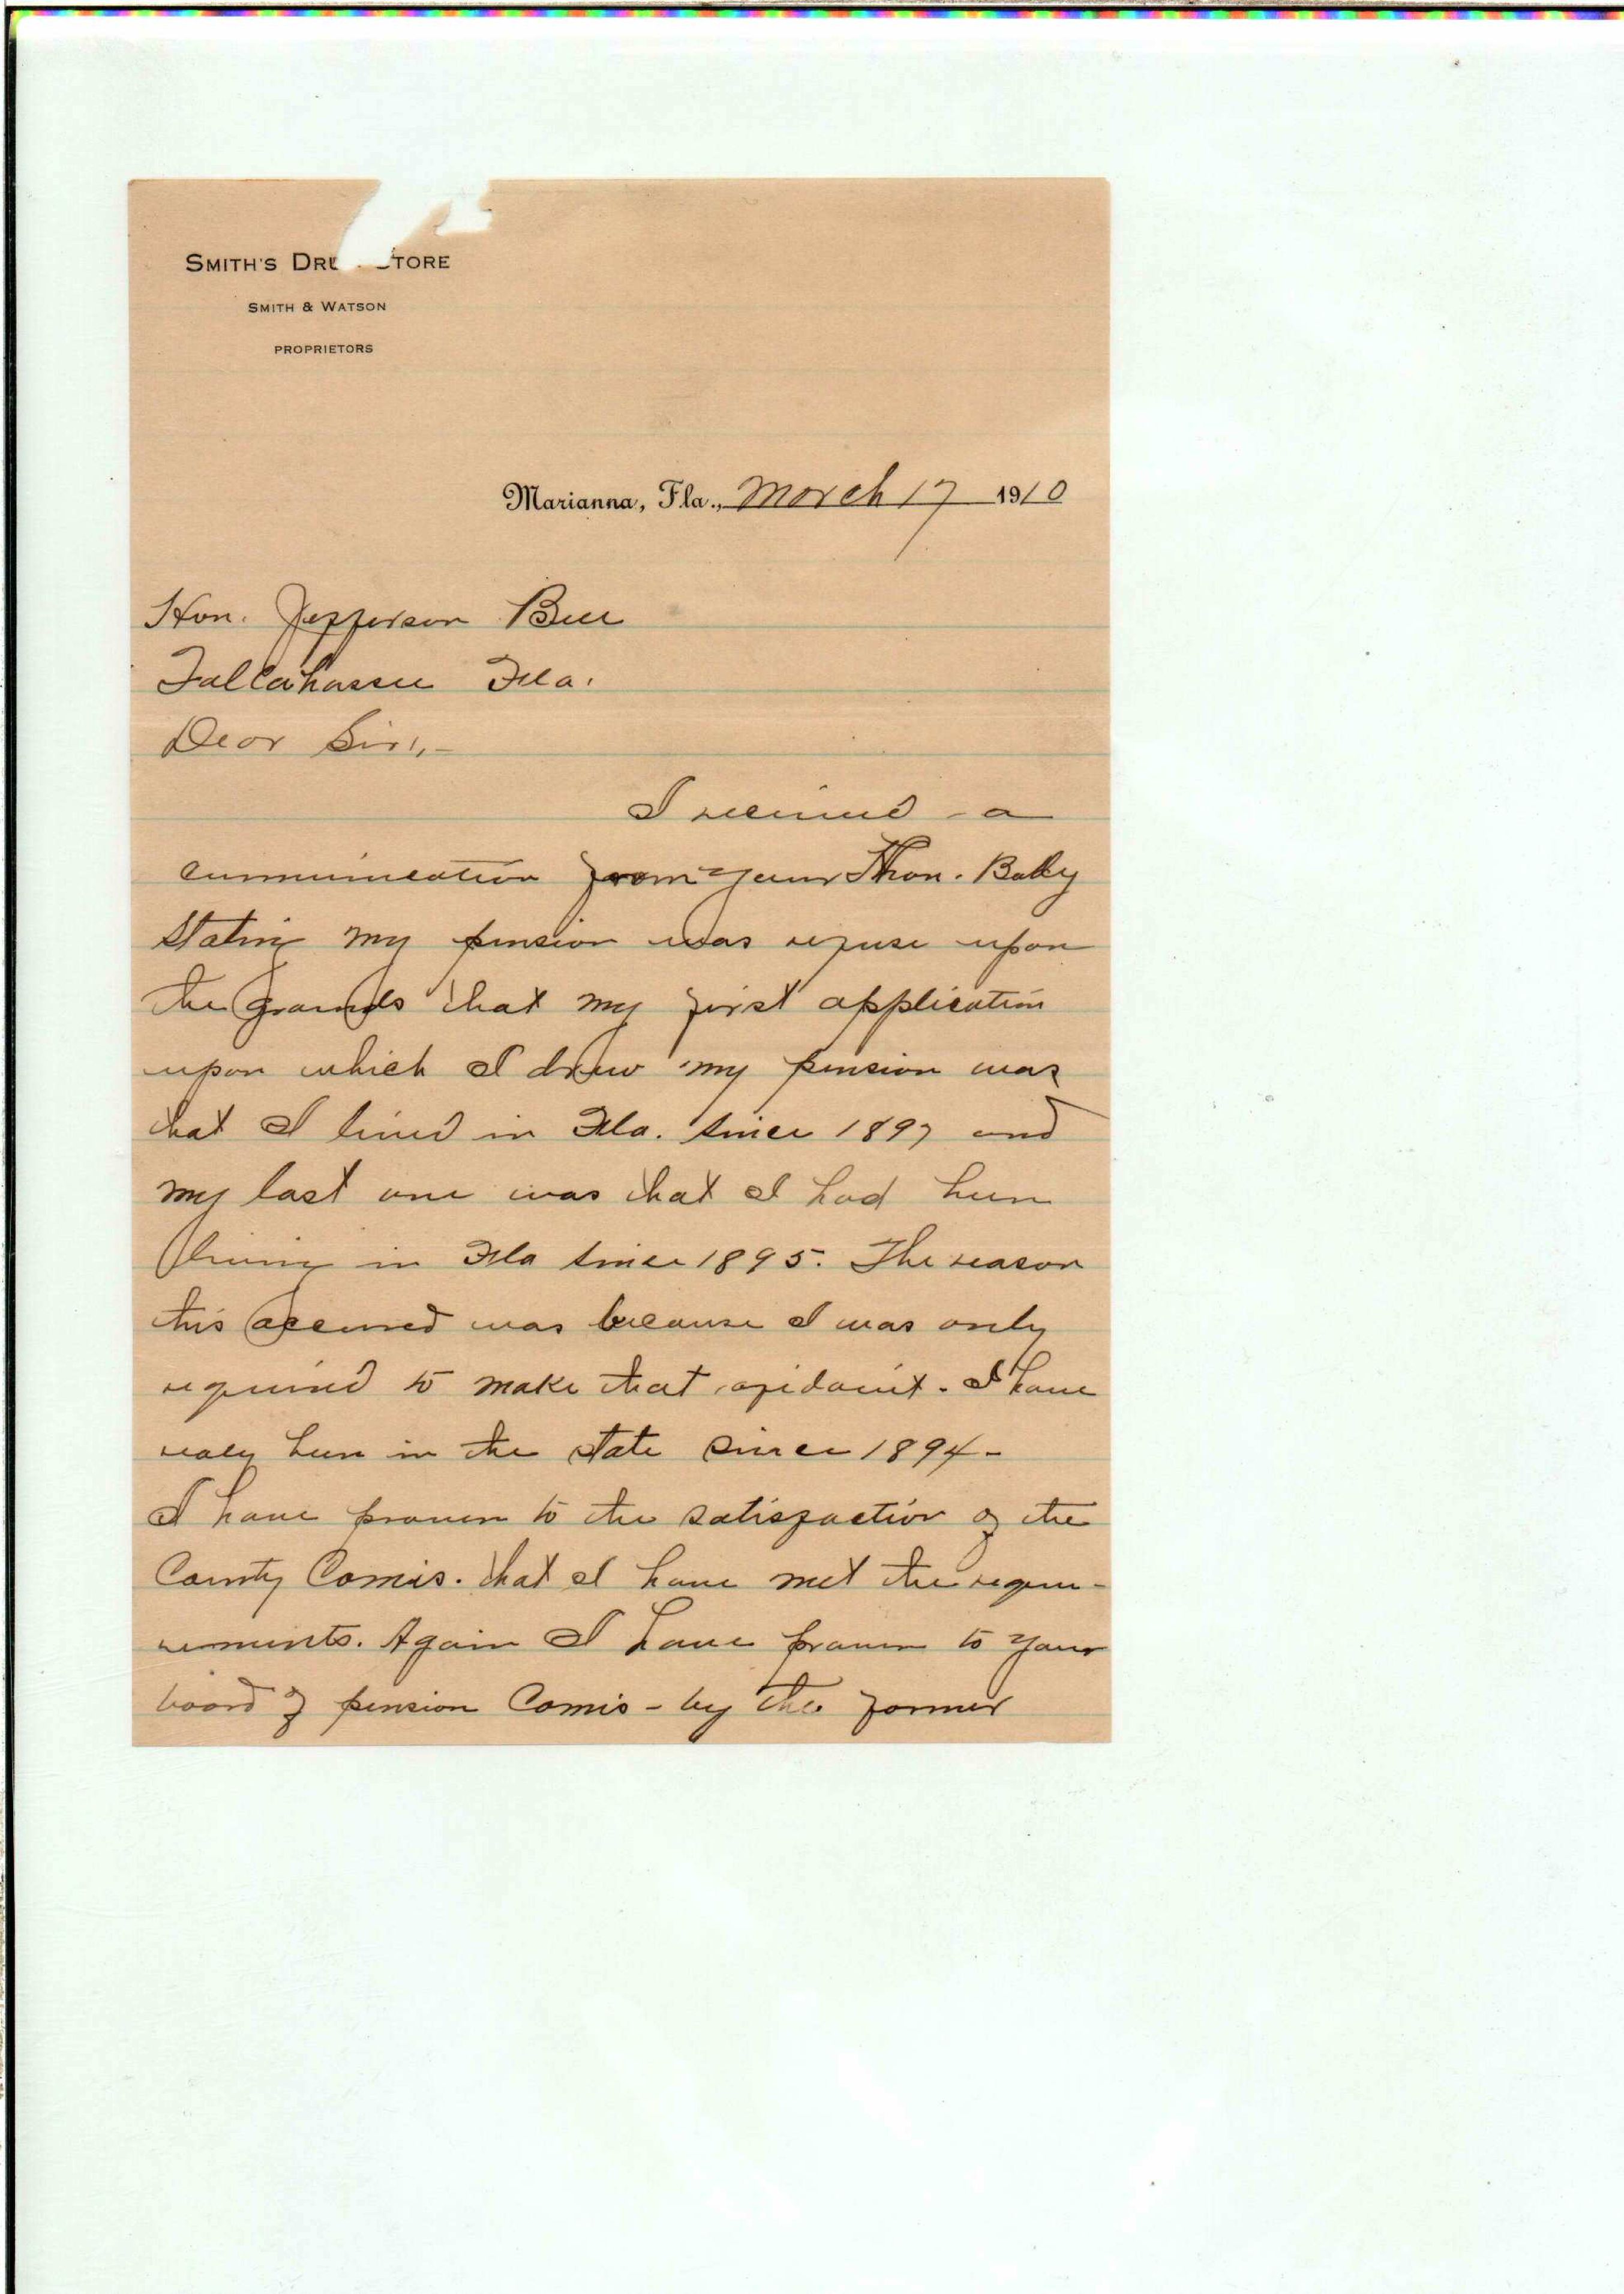 SMITH'S DRU STORE
SMITH & WATSON
PROPRIETORS
Marianna, Fla., March 17 1910
Hon. Jefferson Bell
Tallahassee Fla.
Dear Sir,-
I received a
communication from your Hon. Body
Stating my pension was refuse upon
the grounds that my first application
upon which I drew my pension was
that I lived in Fla. since 1897 and
my last one was that I had been
living in Fla since 1895. The reason
this occurred was because I was only
required to make that afidavit. I have
realy been in the state since 1894-
I have proven to the satisfaction of the
County Comis. that I have met the requi-
rements. Again I have proven to your
board of pension Comis - by the former